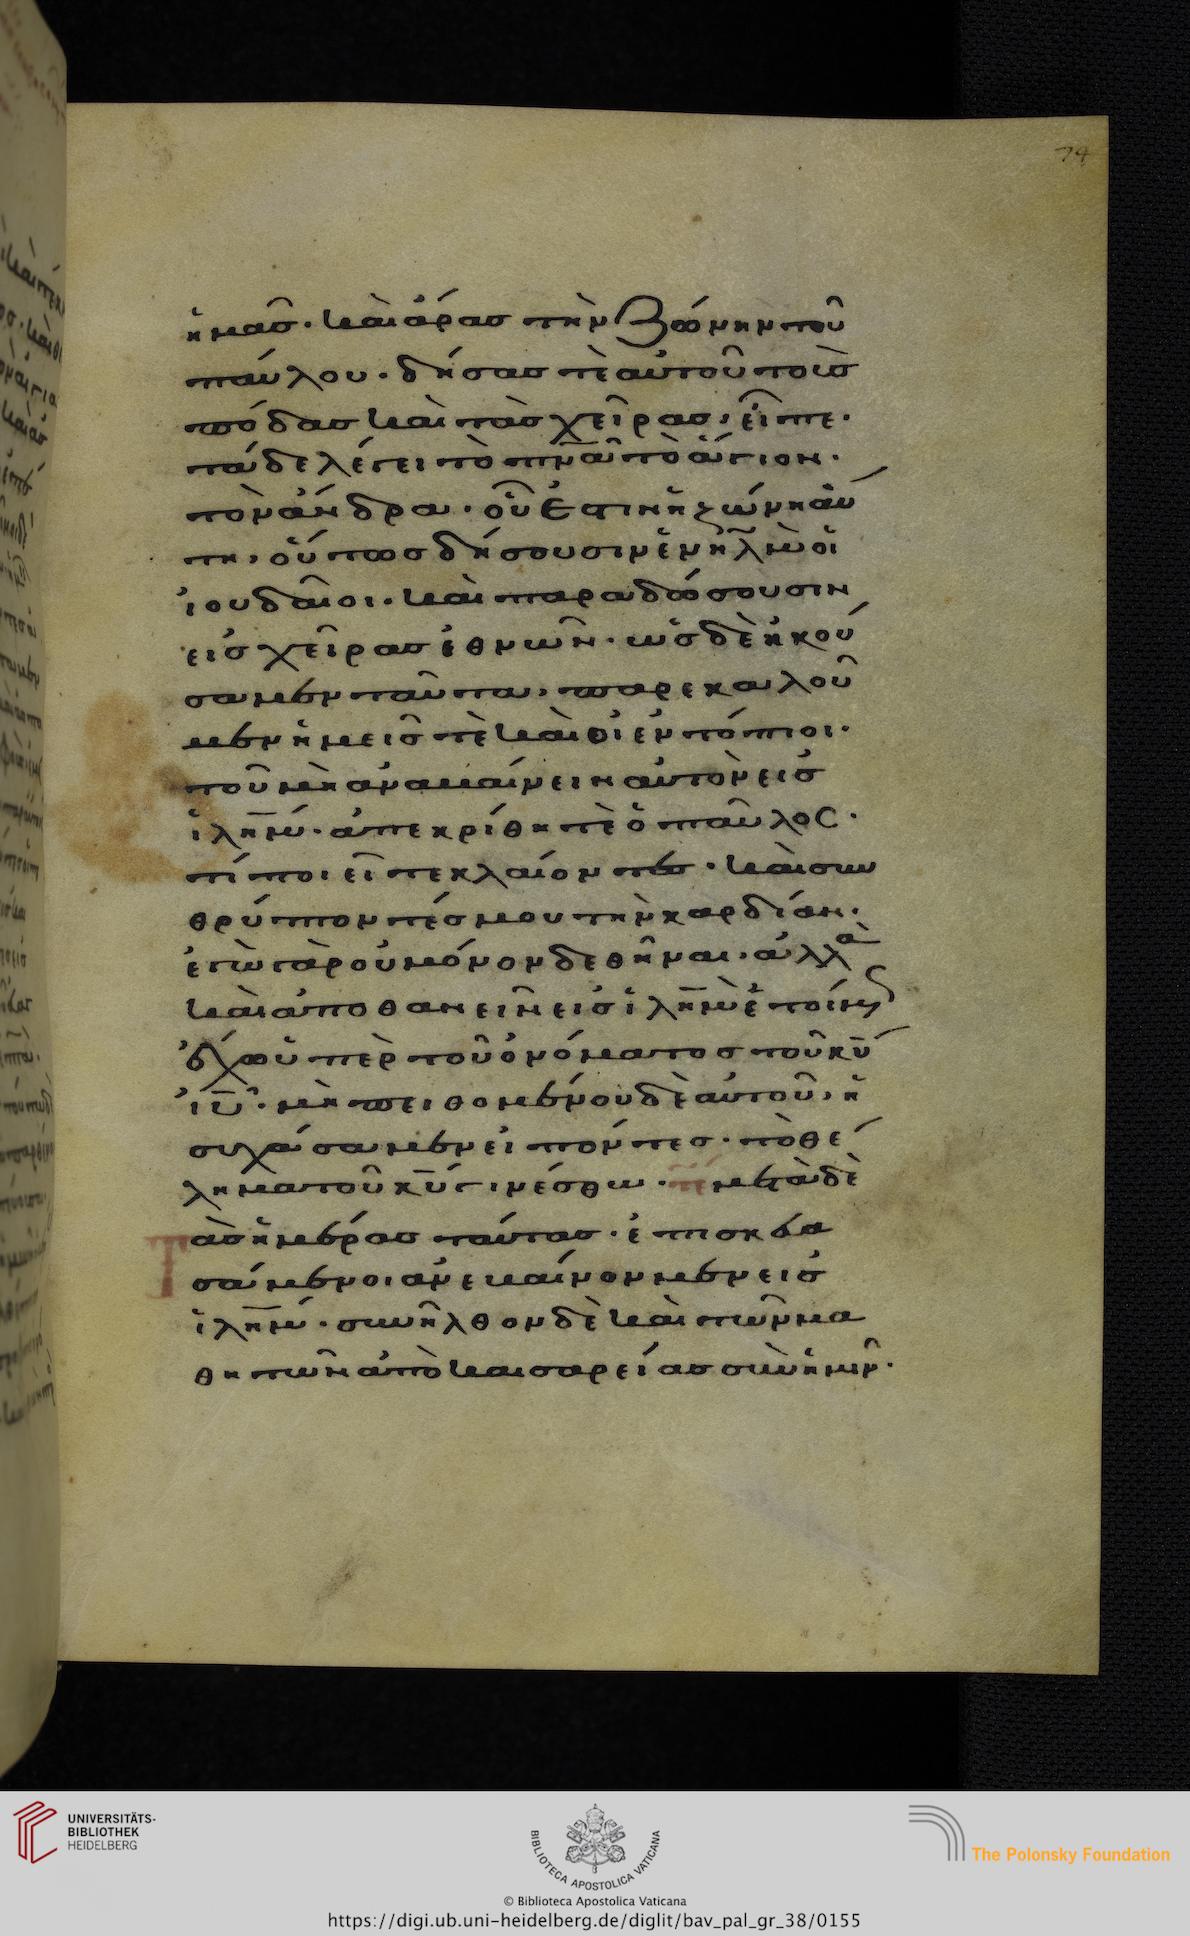 74
ἡμᾶσ· καὶ ἄρασ τὴν ζώνην τοῦ
παύλου· δήσασ τὲ αὐτοῦ τοὺσ
πόδασ καὶ τὰσ χεῖρασ, εἶπε·
τάδε λέγει τὸ πνᾶ τὸ ἅγιον·
τὸν ἄνδρα· οὗ ἐστιν ἡ ζώνη αὕ
τη, οὕτωσ δήσουσιν ἐν ἱ̅λ̅η̅μ̅ οἱ
ἰουδαῖοι· καὶ παραδώσουσιν
εἰσ χεῖρασ ἐθνῶν· ὡσ δὲ ἠκού
σαμεν ταῦτα, παρεκαλοῦ
μεν ἡμεῖσ τὲ καὶ οἱ ἐντόπιοι·
τοῦ μὴ ἀναβαίνειν αὐτὸν εἰσ
ἱλη̅μ· ἀπεκρίθη τὲ ὁ παῦλοσ·
τί ποιεῖτε κλαίοντεσ· καὶ συν
θρύπτοντέσ μου τὴν καρδίαν·
ἐγὼ γὰρ οὐ μόνον δεθῆναι· ἀλλὰ
καὶ ἀποθανεῖν εἰσ ἱλη̅μ ἑτοίμωσ
ἔχω ὑπὲρ τοῦ ὀνόματοσ τοῦ κ̅υ̅
ἰ̅υ̅· μὴ πειθομένου δὲ αὐτοῦ, ἡ
συχάσαμεν εἰπόντεσ· τὸ θέ
λημα τοῦ κ̅υ̅ γινέσθω· μετὰ δὲ
Τὰσ ἡμέρασ ταύτασ· ἐπισκευα
σάμενοι ἀνεβαίνομεν εἰσ
ἱλη̅μ· συνῆλθον δὲ καὶ τῶν μα
θητῶν ἀπὸ καισαρείασ σὺν ἡμῖν·
UNIVERSITÄTS-
BIBLIOTHEK
HEIDELBERG
BIBLIOTECA APOSTOLICA VATICANA
The Polonsky Foundation
© Biblioteca Apostolica Vaticana
https://digi.ub.uni-heidelberg.de/diglit/bav_pal_gr_38/0155